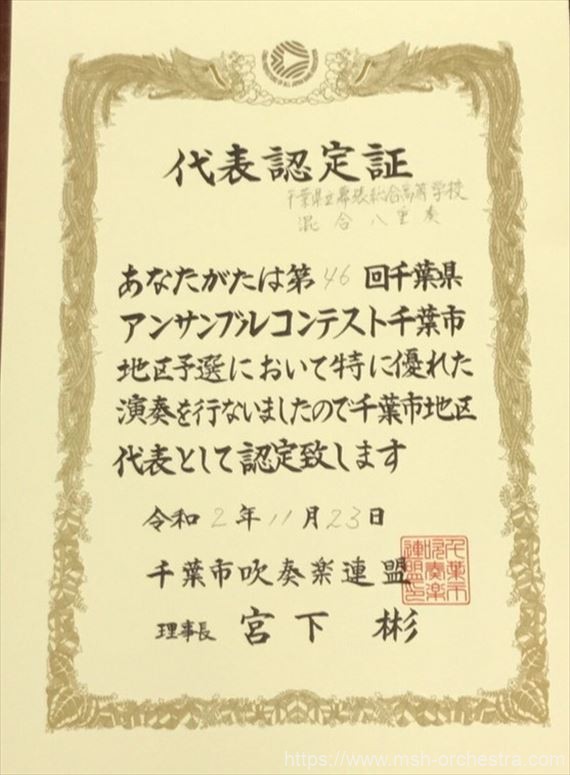 代表認定証
千葉県立幕張総合高等学校
混合八重奏
あなたがたは第46回千葉県
アンサンブルコンテスト千葉市
地区予選において特に優れた
演奏を行ないましたので千葉市地区
代表として認定致します
令和2年11月23日
千葉市吹奏楽連盟
理事長 宮下 彬
千葉市
吹奏楽
連盟印
https://www.msh-orchestra.com